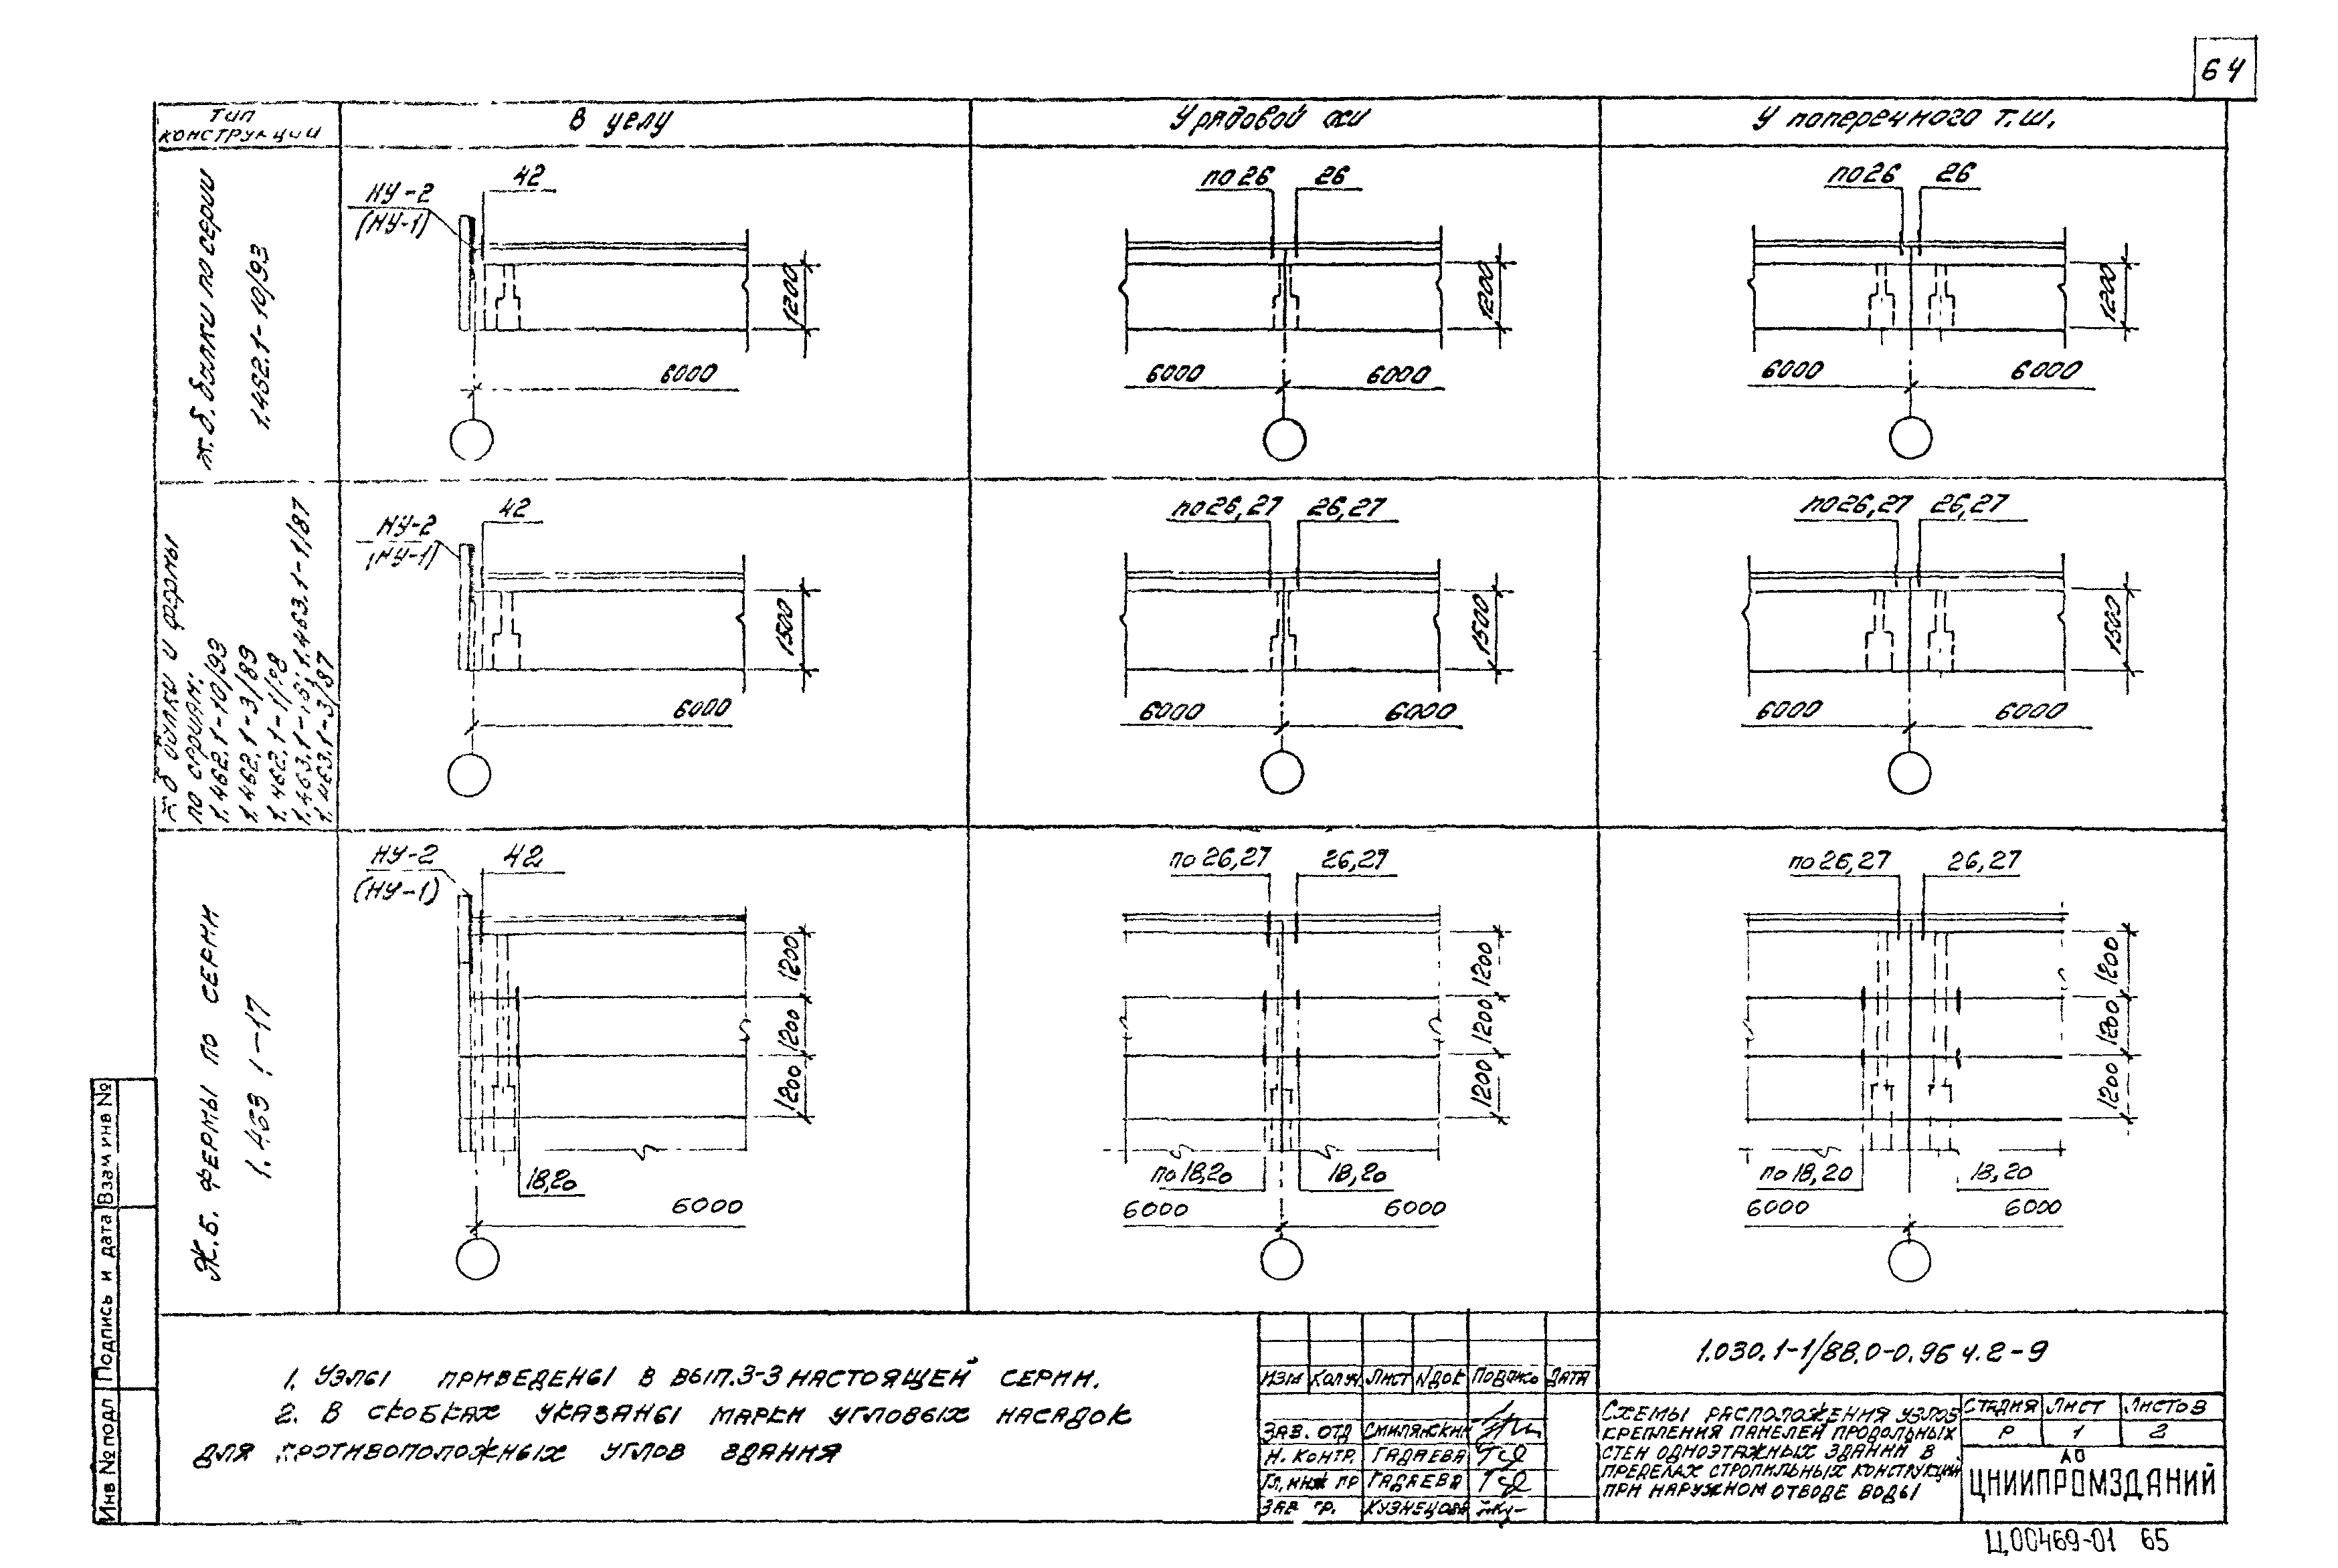 64
Тип конструкции
В углу
У рядовой оси
У поперечного т.ш.
ж.б. балки по серии
1.462.1-10/93
НУ-2
(НУ-1)
42
1200
6000
по 26
26
1200
6000
6000
по 26
26
1200
6000
6000
ж.б балки и фермы
по сериям:
1.462.1-10/93
1.462.1-3/89
1.463.1-3/87
1.463.1-1/87
НУ-2
(НУ-1)
42
1500
6000
по 26,27
26,27
1500
6000
6000
по 26,27
26,27
1500
6000
6000
Ж.Б. ФЕРМЫ ПО СЕРИИ
1.463.1-17
НУ-2
(НУ-1)
42
1200
1200
1200
18,20
6000
по 26,27
26,27
1200
1200
1200
по 18,20
18,20
6000
6000
по 26,27
26,27
1200
1200
1200
по 18,20
18,20
6000
6000
1. УЗЛЫ ПРИВЕДЕНЫ В ВЫП.3-3 НАСТОЯЩЕЙ СЕРИИ.
2. В СКОБКАХ УКАЗАНЫ МАРКИ УГЛОВЫХ НАСАДОК
ДЛЯ ПРОТИВОПОЛОЖНЫХ УГЛОВ ЗДАНИЯ
ИЗМ КОЛУЧ ЛИСТ №ДОК ПОДПИСЬ ДАТА
ЗАВ. ОТД СМИЛЯНСКИЙ
Н. КОНТР. ГАДАЕВА
ГЛ. ИНЖ ПР ГАДАЕВА
ЗАВ ГР. КУЗНЕЦОВА
1.030.1-1/88.0-0.96 ч.2-9
СХЕМЫ РАСПОЛОЖЕНИЯ УЗЛОВ
КРЕПЛЕНИЯ ПАНЕЛЕЙ ПРОДОЛЬНЫХ
СТЕН ОДНОЭТАЖНЫХ ЗДАНИЙ В
ПРЕДЕЛАХ СТРОПИЛЬНЫХ КОНСТРУКЦИЙ
ПРИ НАРУЖНОМ ОТВОДЕ ВОДЫ
СТАДИЯ ЛИСТ ЛИСТОВ
Р 1 2
АО
ЦНИИПРОМЗДАНИЙ
Взам инв №
Подпись и дата
Инв № подл
Ц00469-01 65